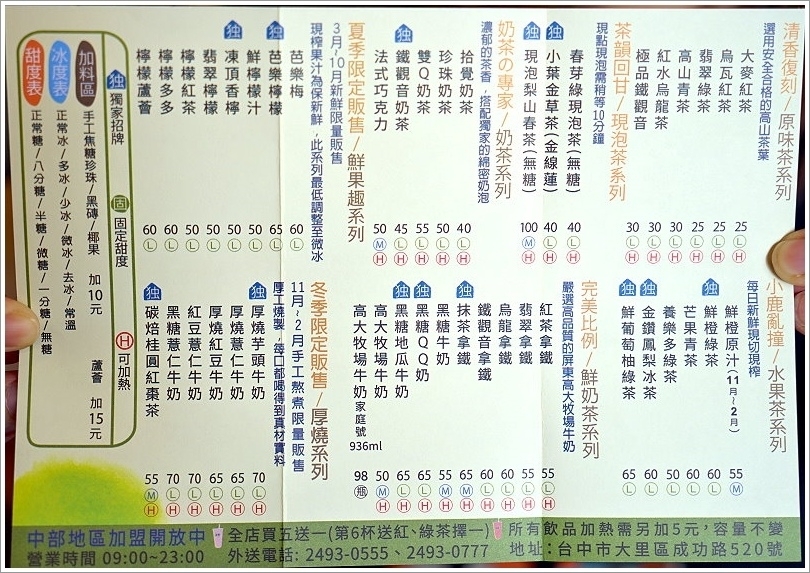 清香復刻/原味茶系列
選用安全合格的高山茶葉
大麥紅茶 25 L H
烏瓦紅茶 25 L H
翡翠綠茶 25 L H
高山青茶 30 L H
紅水烏龍茶 30 L H
極品鐵觀音 30 L H
茶韻回甘/現泡茶系列
現點現泡需稍等10分鐘
春芽綠現泡茶(無糖) 40 L H
独 小葉金草茶(金線蓮) 40 L H
独 現泡梨山春茶(無糖) 100 M H
奶茶の專家/奶茶系列
濃郁的茶香，搭配獨家的綿密奶泡
拾覺奶茶 40 L H
珍珠奶茶 50 L H
雙Q奶茶 55 L H
独 鐵觀音奶茶 45 L H
法式巧克力 50 M H
夏季限定販售/鮮果趣系列
3月~10月新鮮限量販售
現榨果汁為保新鮮，此系列最低調整至微冰
芭樂梅 60 L
独 芭樂檸檬 65 L
鮮檸檬汁 50 L
独 凍頂香檸 50 L
翡翠檸檬 50 L
檸檬紅茶 50 L
檸檬多多 60 L
檸檬蘆薈 60 L
独 獨家招牌 固 固定甜度 H 可加熱
加料區 手工焦糖珍珠/黑磚/椰果 加10元 蘆薈 加15元
冰度表 正常冰/多冰/少冰/微冰/去冰/常溫
甜度表 正常糖/八分糖/半糖/微糖/一分糖/無糖
小鹿亂撞/水果茶系列
每日新鮮現切現榨
鮮橙原汁(11月~2月) 55 M
独 鮮橙綠 60 L
芒果青茶 60 L
養樂多綠茶 50 L
独 金鑽鳳梨冰茶 60 L
独 鮮葡萄柚綠茶 65 L
完美比例/鮮奶茶系列
嚴選高品質的屏東高大牧場牛奶
紅茶拿鐵 55 L H
翡翠拿鐵 55 L H
烏龍拿鐵 60 L H
鐵觀音拿鐵 60 L H
独 抹茶拿鐵 65 M H
黑糖牛奶 55 M H
独 黑糖QQ奶 65 L H
独 黑糖地瓜牛奶 65 L H
高大牧場牛奶 50 M H
高大牧場牛奶家庭號 936ml 98 瓶
冬季限定販售/厚燒系列
11月~2月手工熬煮限量販售
厚工燒製，每口都喝得到真材實料
独 厚燒芋頭牛奶 70 L H
厚燒薏仁牛奶 60 L H
厚燒紅豆牛奶 60 L H
紅豆薏仁牛奶 70 L H
黑糖薏仁牛奶 70 L H
独 碳焙桂圓紅棗茶 55 M H
中部地區加盟開放中 全店買五送一(第6杯送紅、綠茶擇一) 所有飲品加熱需另加5元，容量不變
營業時間 09:00~23:00 外送電話: 2493-0555、2493-0777 地址:台中市大里區成功路520號